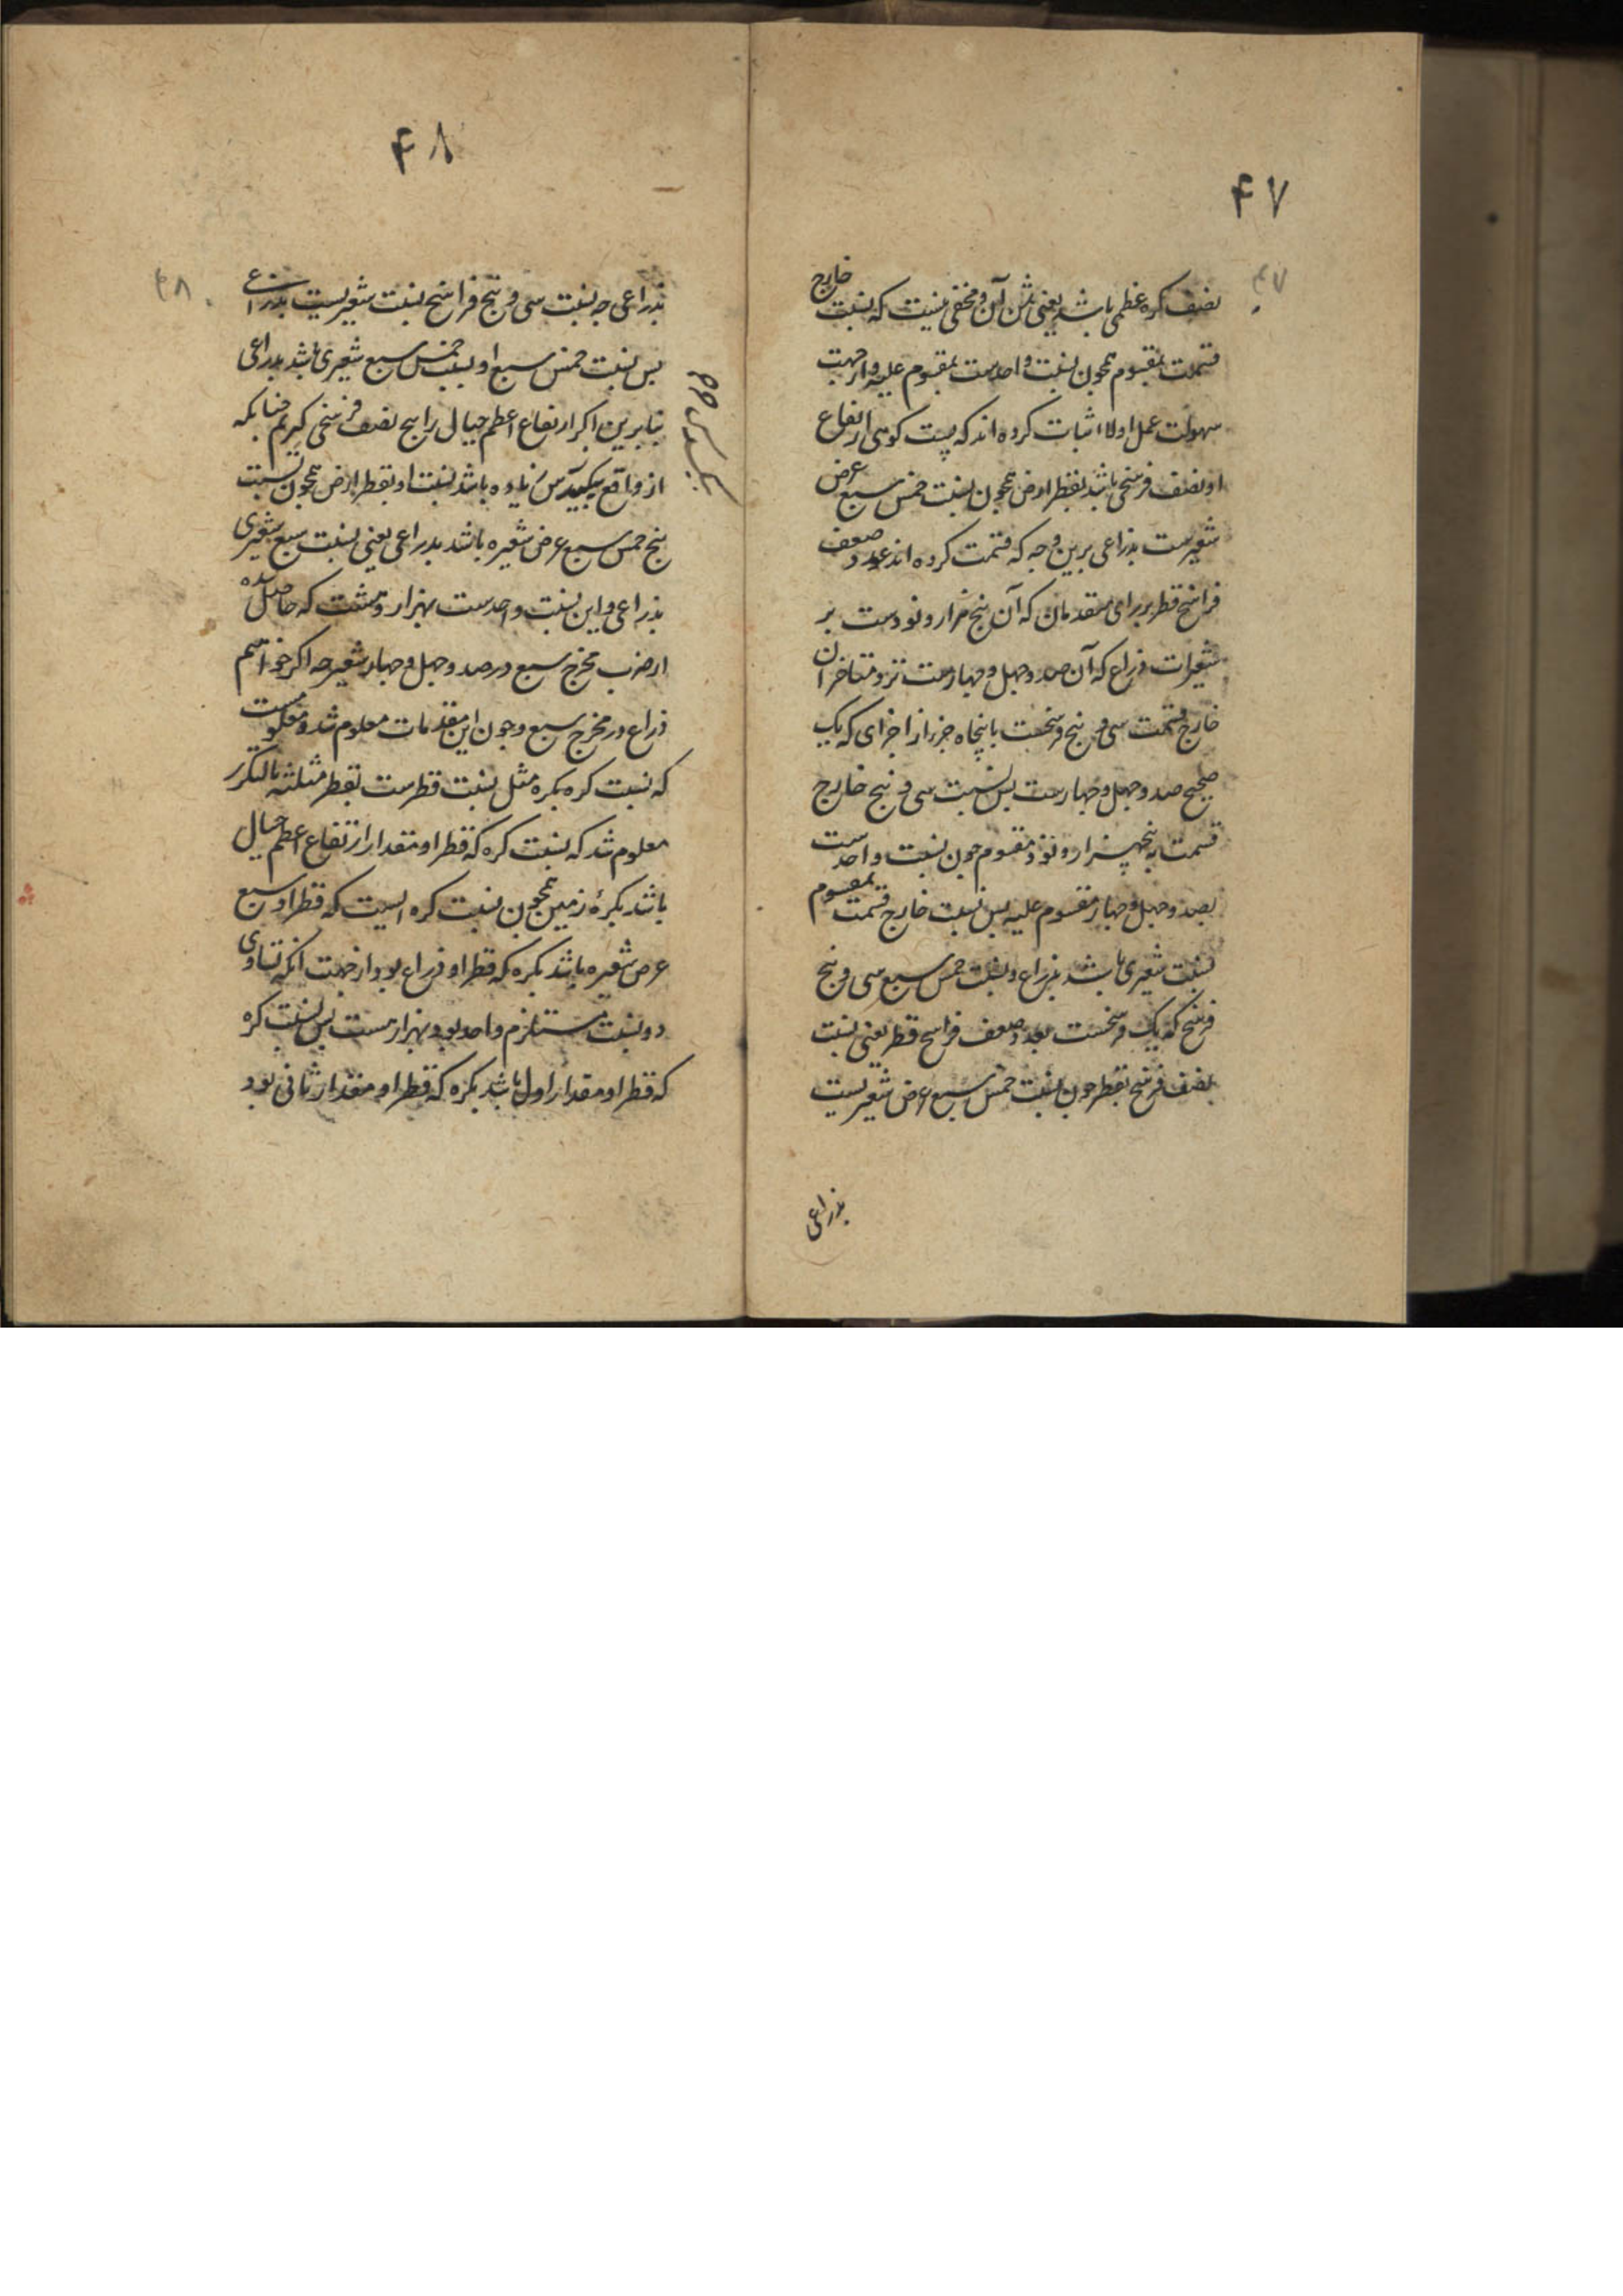 ۴۷
۴۷
نصف کره عظمی باشد یعنی ثمن آن و مخفی نیست که نسبت خارج
قسمت بمقسوم همچون نسبت واحدست بمقسوم علیه و از جهت
سهولت عمل اولا اثبات کرده اند که نسبت کوهی ارتفاع
او نصف فرسخی باشد بقطر ارض همچون نسبت خمس سبع عرض
شعیرست بذراعی برین وجه که قسمت کرده اند عدد ضعف
فراسخ قطر بر رای متقدمان که آن پنج هزار و نودست بر
شعیرات ذراع که آن صد و چهل و چهارست نزد متاخران
خارج قسمت سی و پنج فرسخست با پنجاه جزء از اجزای که یک
صحیح صد و چهل و چهارست پس نسبت سی و پنج خارج
قسمت به پنجهزار و نود مقسوم چون نسبت واحدست
بصد و چهل و چهار مقسوم علیه پس نسبت خارج قسمت بمقسوم
نسبت شعیری باشد بذراع و نسبت خمس سبع سی و پنج
فرسخ که یک فرسخست بعدد ضعف فراسخ قطر یعنی نسبت
نصف فرسخ بقطر چون نسبت خمس سبع عرض شعیریست
بذراعی
۴۸
۴۸
بذراعی چه نسبت سی و پنج فراسخ نسبت شعیریست بذراعی
پس نسبت خمس سبع او نسبت خمس سبع شعیری باشد بذراعی
بنابرین اکر ارتفاع اعظم جبال را پنج نصف فرسخی کیریم چنانکه
از واقع بیکسدس زیاده باشد نسبت او بقطر ارض همچون نسبت
پنج خمس سبع عرض شعیره باشد بذراعی یعنی نسبت سبع شعیری
بذراعی و این نسبت واحدست بهزار و هشت که حاصل شده
از ضرب مخرج سبع در صد و چهل و چهار شعیرجه اکر خواهیم
ذراع در مخرج سبع و چون این مقدمات معلوم شد و معلومست
که نسبت کره بکره مثل نسبت قطرست بقطر مثلثه بالتکریر
معلوم شد که نسبت کره که قطر او مقدار ارتفاع اعظم جبال
باشد بکرهٔ زمین همچون نسبت کره ایست که قطر او سبع
عرض شعیره باشد بکره که قطر او ذراع بود از جهت آنکه تساوی
دو نسبت مستلزم واحد بود و بهزار هست پس نسبت کره
که قطر او مقدار اول باشد بکره که قطر او مقدار ثانی بود